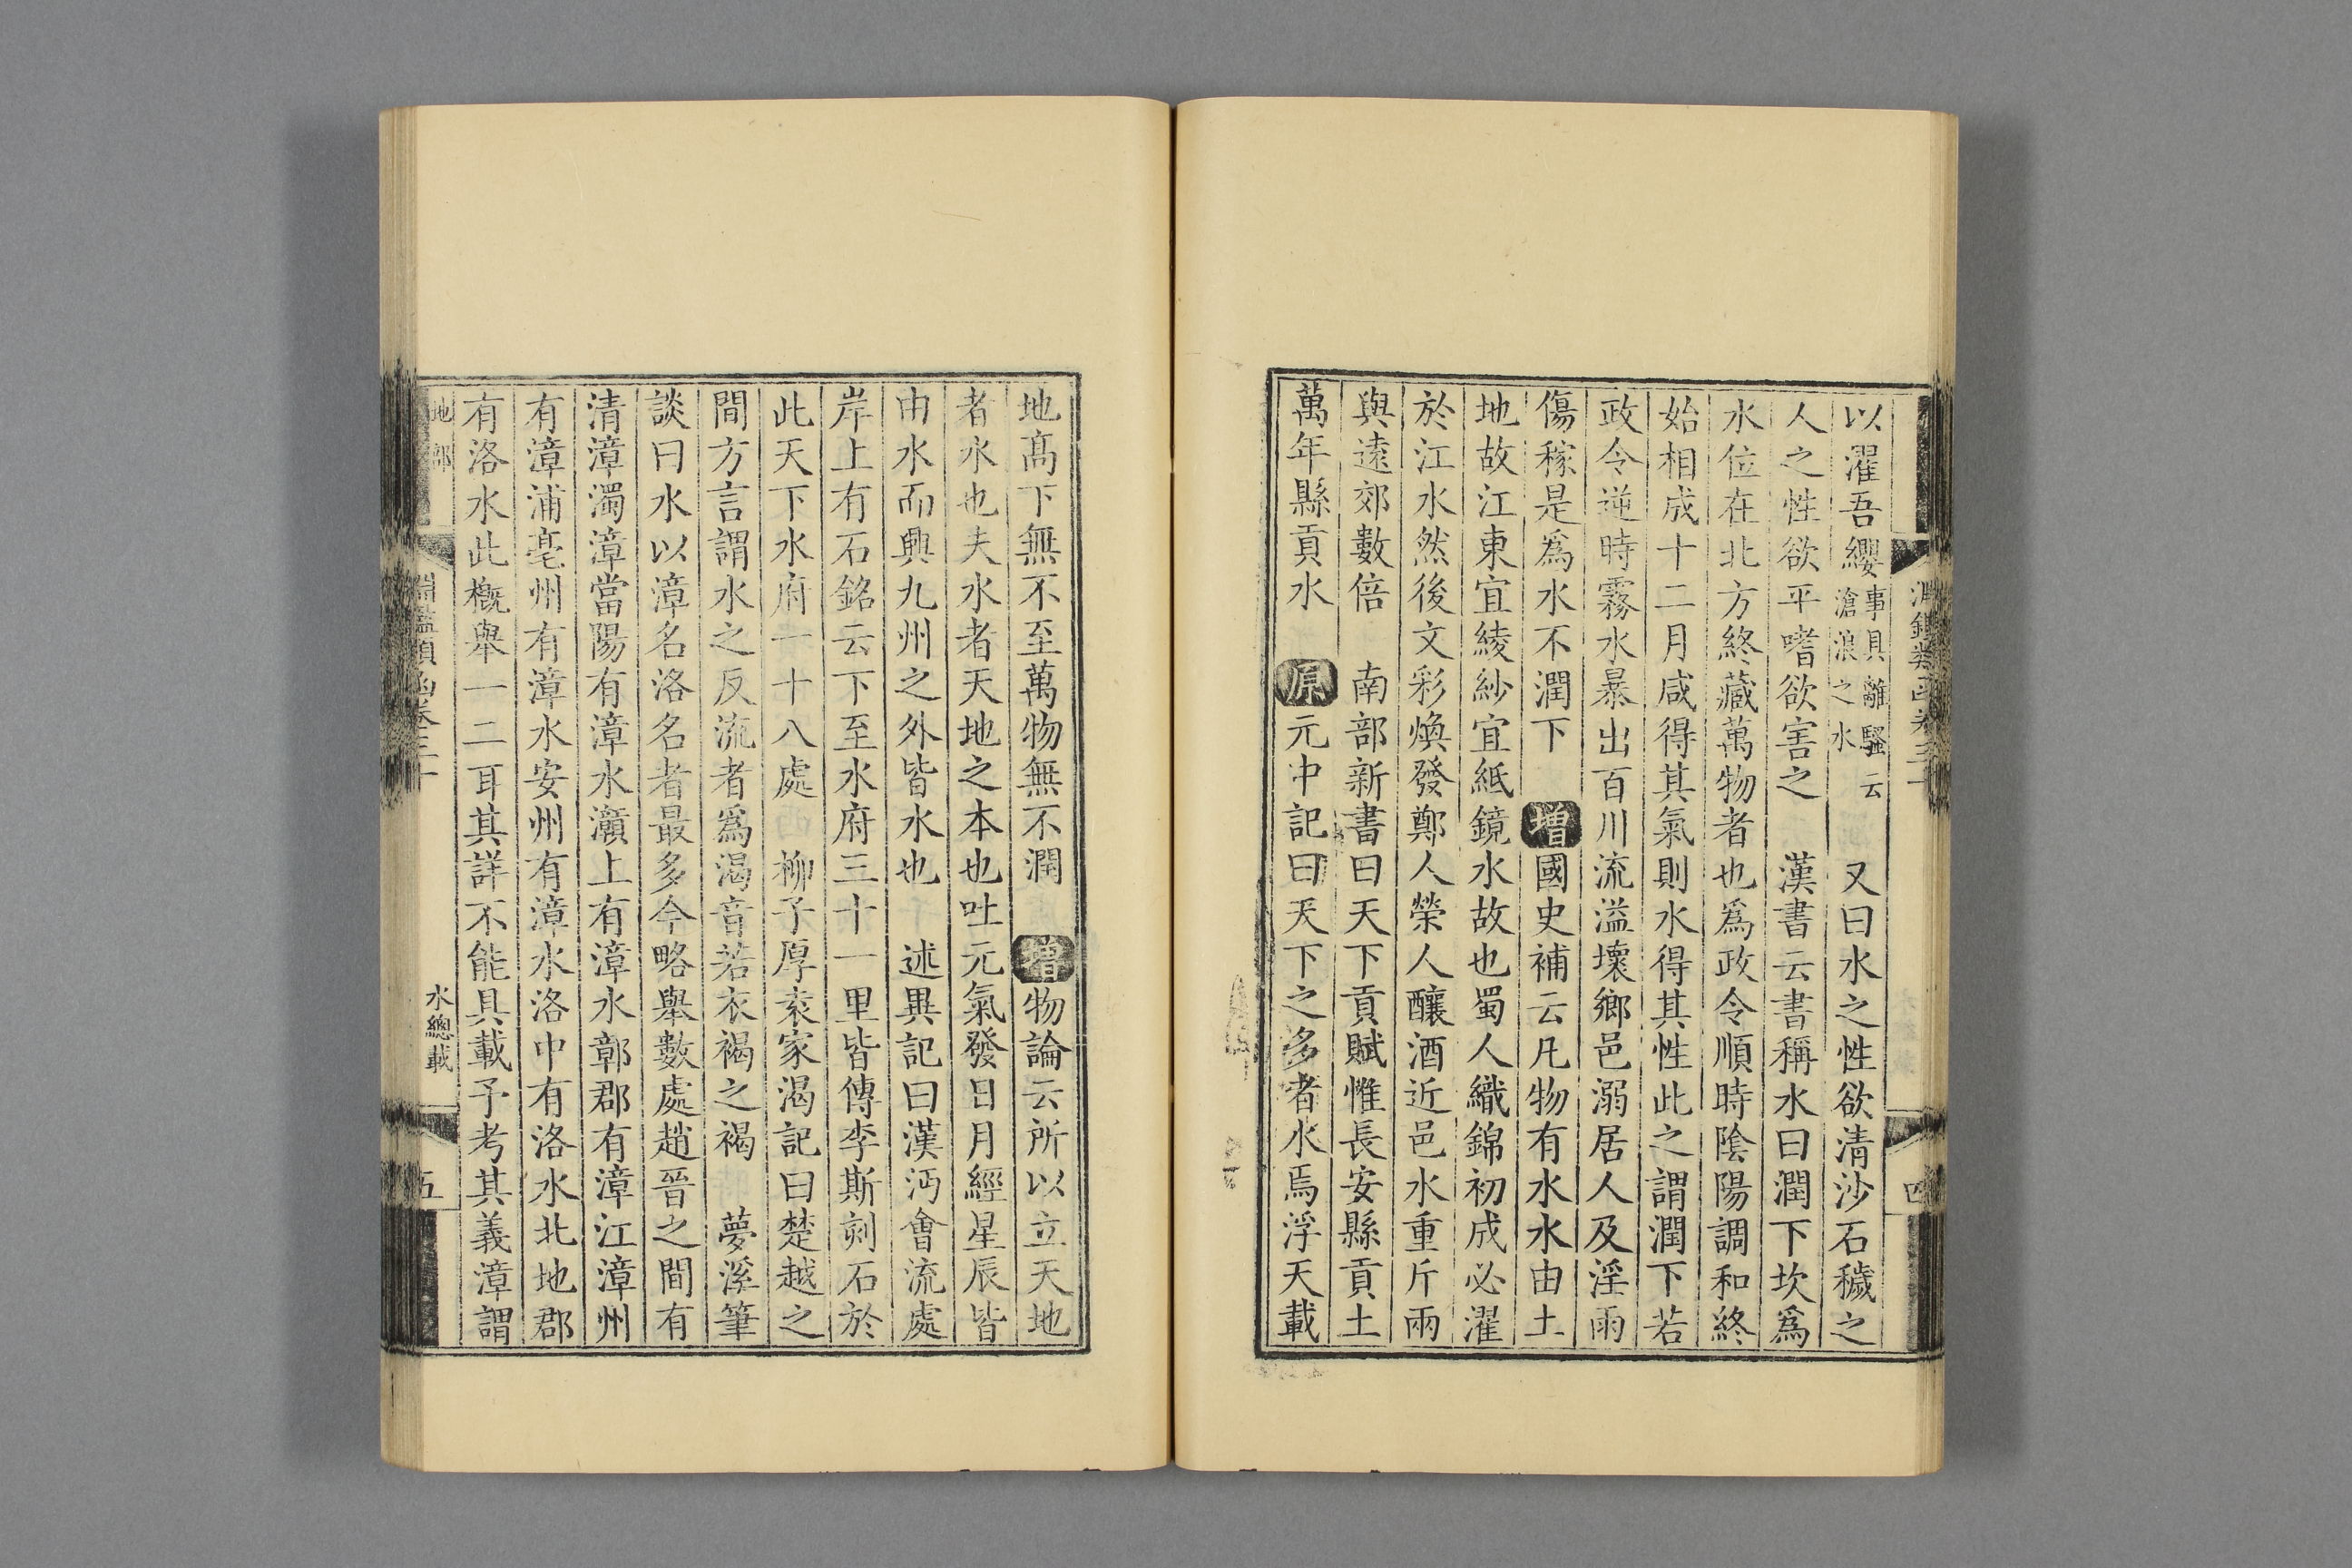 以濯吾纓事具離騷云滄浪之水　又曰水之性欲清沙石穢之
人之性欲平嗜欲害之　漢書云書稱水曰潤下坎爲
水位在北方終藏萬物者也爲政令順時陰陽調和終
始相成十二月咸得其氣則水得其性此之謂潤下若
政令逆時霧水暴出百川流溢壞鄉邑溺居人及淫雨
傷稼是爲水不潤下　增國史補云凡物有水水由土
地故江東宜綾紗宜紙鏡水故也蜀人織錦初成必濯
於江水然後文彩煥發鄭人滎人釀酒近邑水重斤兩
與遠郊數倍　南部新書曰天下貢賦惟長安縣貢土
萬年縣貢水　原元中記曰天下之多者水焉浮天載
地高下無不至萬物無不潤　增物論云所以立天地
者水也夫水者天地之本也吐元氣發日月經星辰皆
由水而興九州之外皆水也　述異記曰漢沔會流處
岸上有石銘云下至水府三十一里皆傳李斯刻石於
此天下水府一十八處　柳子厚袁家渴記曰楚越之
間方言謂水之反流者爲渴音若衣褐之褐　夢溪筆
談曰水以漳名洛名者最多今略舉數處趙晉之間有
清漳濁漳當陽有漳水灨上有漳水鄣郡有漳江漳州
有漳浦亳州有漳水安州有漳水洛中有洛水北地郡
有洛水此概舉一二耳其詳不能具載予考其義漳謂
地部
淵鑑類函卷三十
水總載
五
淵鑑類函卷三十
四